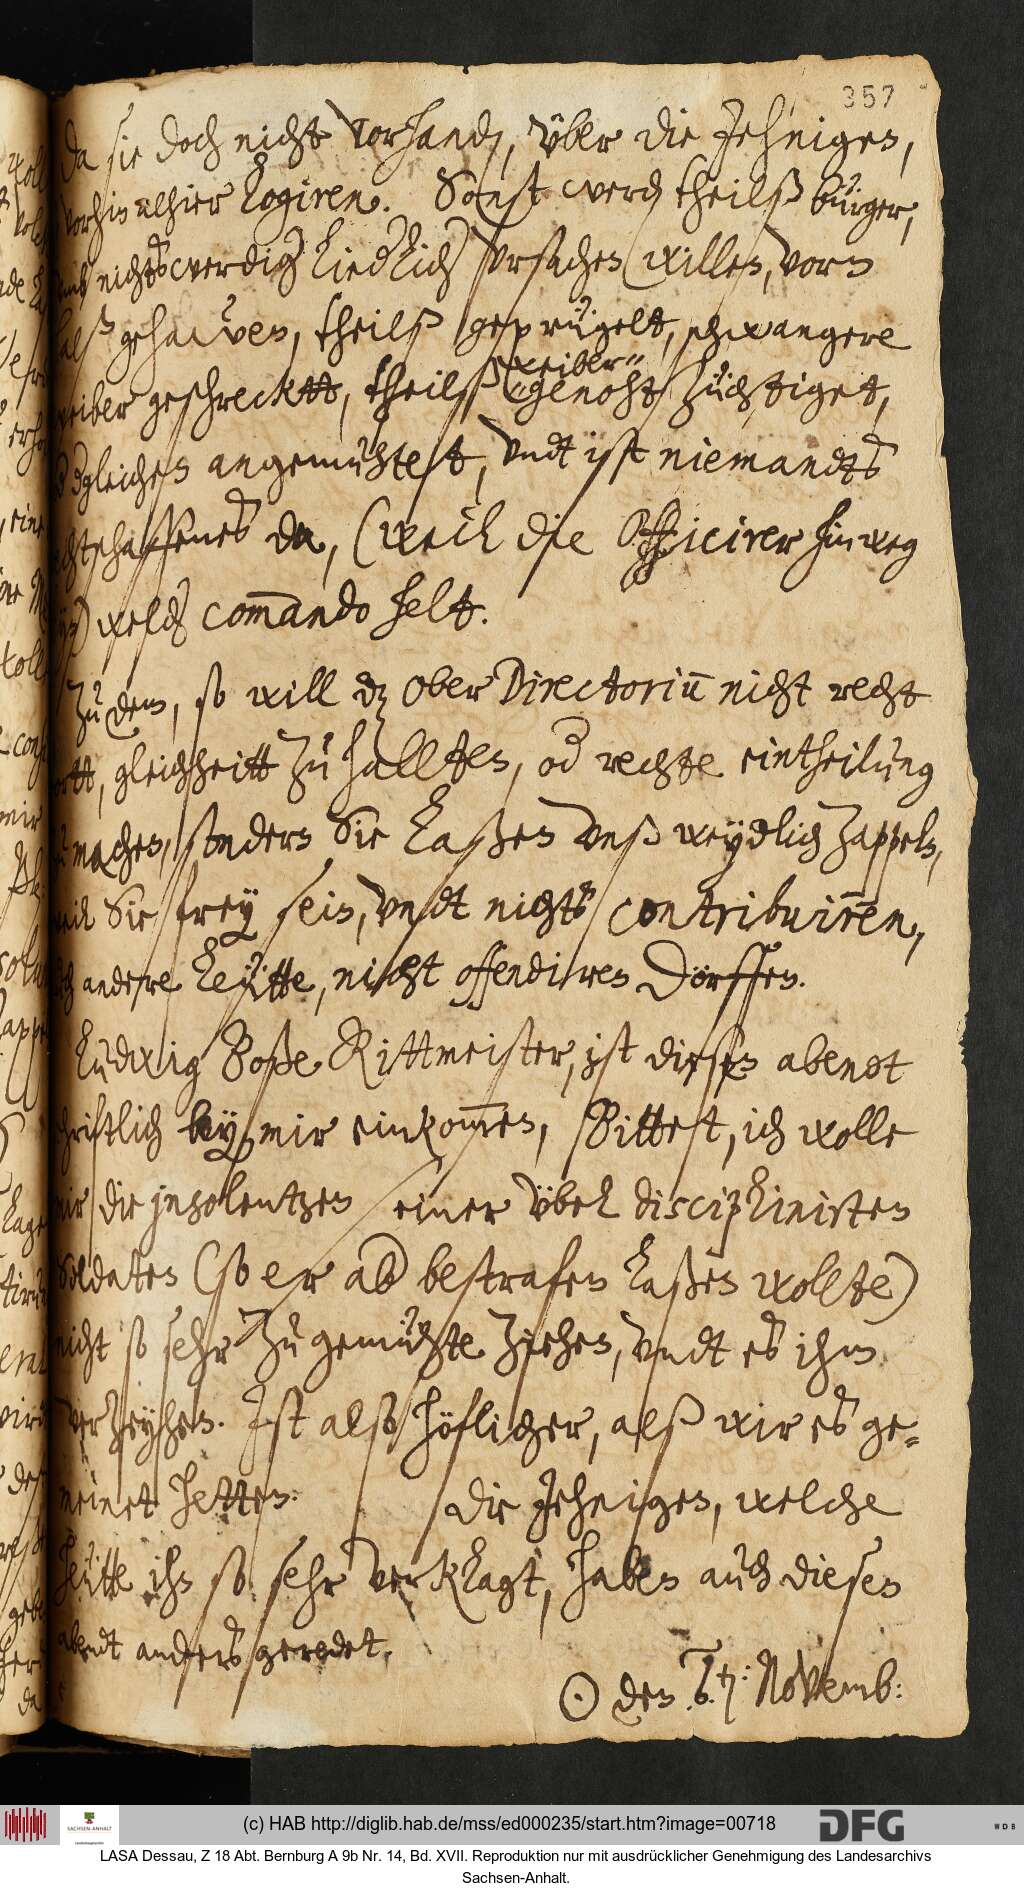 357
da sie doch nicht vorhand, über die Jehnigen,
vorhin alhier logiren. Sonst werd theilß bürger,
nichtswerdig liedlich ursachen willen, vorn
halß gehawen, theilß geprügelt, schwangere
weiber geschreckett, theilß
weiber genohtzüchtiget,
dgleichen angemuhtet, undt ist niemandts
da, (weil die Officirer hinweg
welch comando helt.
Zu dem, so will dz Ober Directorium nicht recht
gleichheitt zu hallten, od rechte eintheilung
machen, sondern Sie laßen unß weydlich zappeln,
weil Sie frey sein, undt nichts contribuiren,
andere leütte, nicht offendiren dörffen.
Ludwig Boße Rittmeister, ist diesen abendt
schriftlich bey mir einkommen, Bittet, ich wolle
mir die insolentzen einer übel disciplinirten
Soldaten (so er ab bestrafen laßen wollte)
nicht so sehr zu gemühte ziehen, undt es ihm
verzeyhen. Ist also höflicher, alß wir es ge-
meinet hetten: die Jehnigen, welche
heütte ihn so sehr verklagt, haben auch diesen
abendt anders geredet.
☉ den 6. Novemb:
(c) HAB http://diglib.hab.de/mss/ed000235/start.htm?image=00718
SACHSEN-ANHALT
DFG
WDB
LASA Dessau, Z 18 Abt. Bernburg A 9b Nr. 14, Bd. XVII. Reproduktion nur mit ausdrücklicher Genehmigung des Landesarchivs
Sachsen-Anhalt.